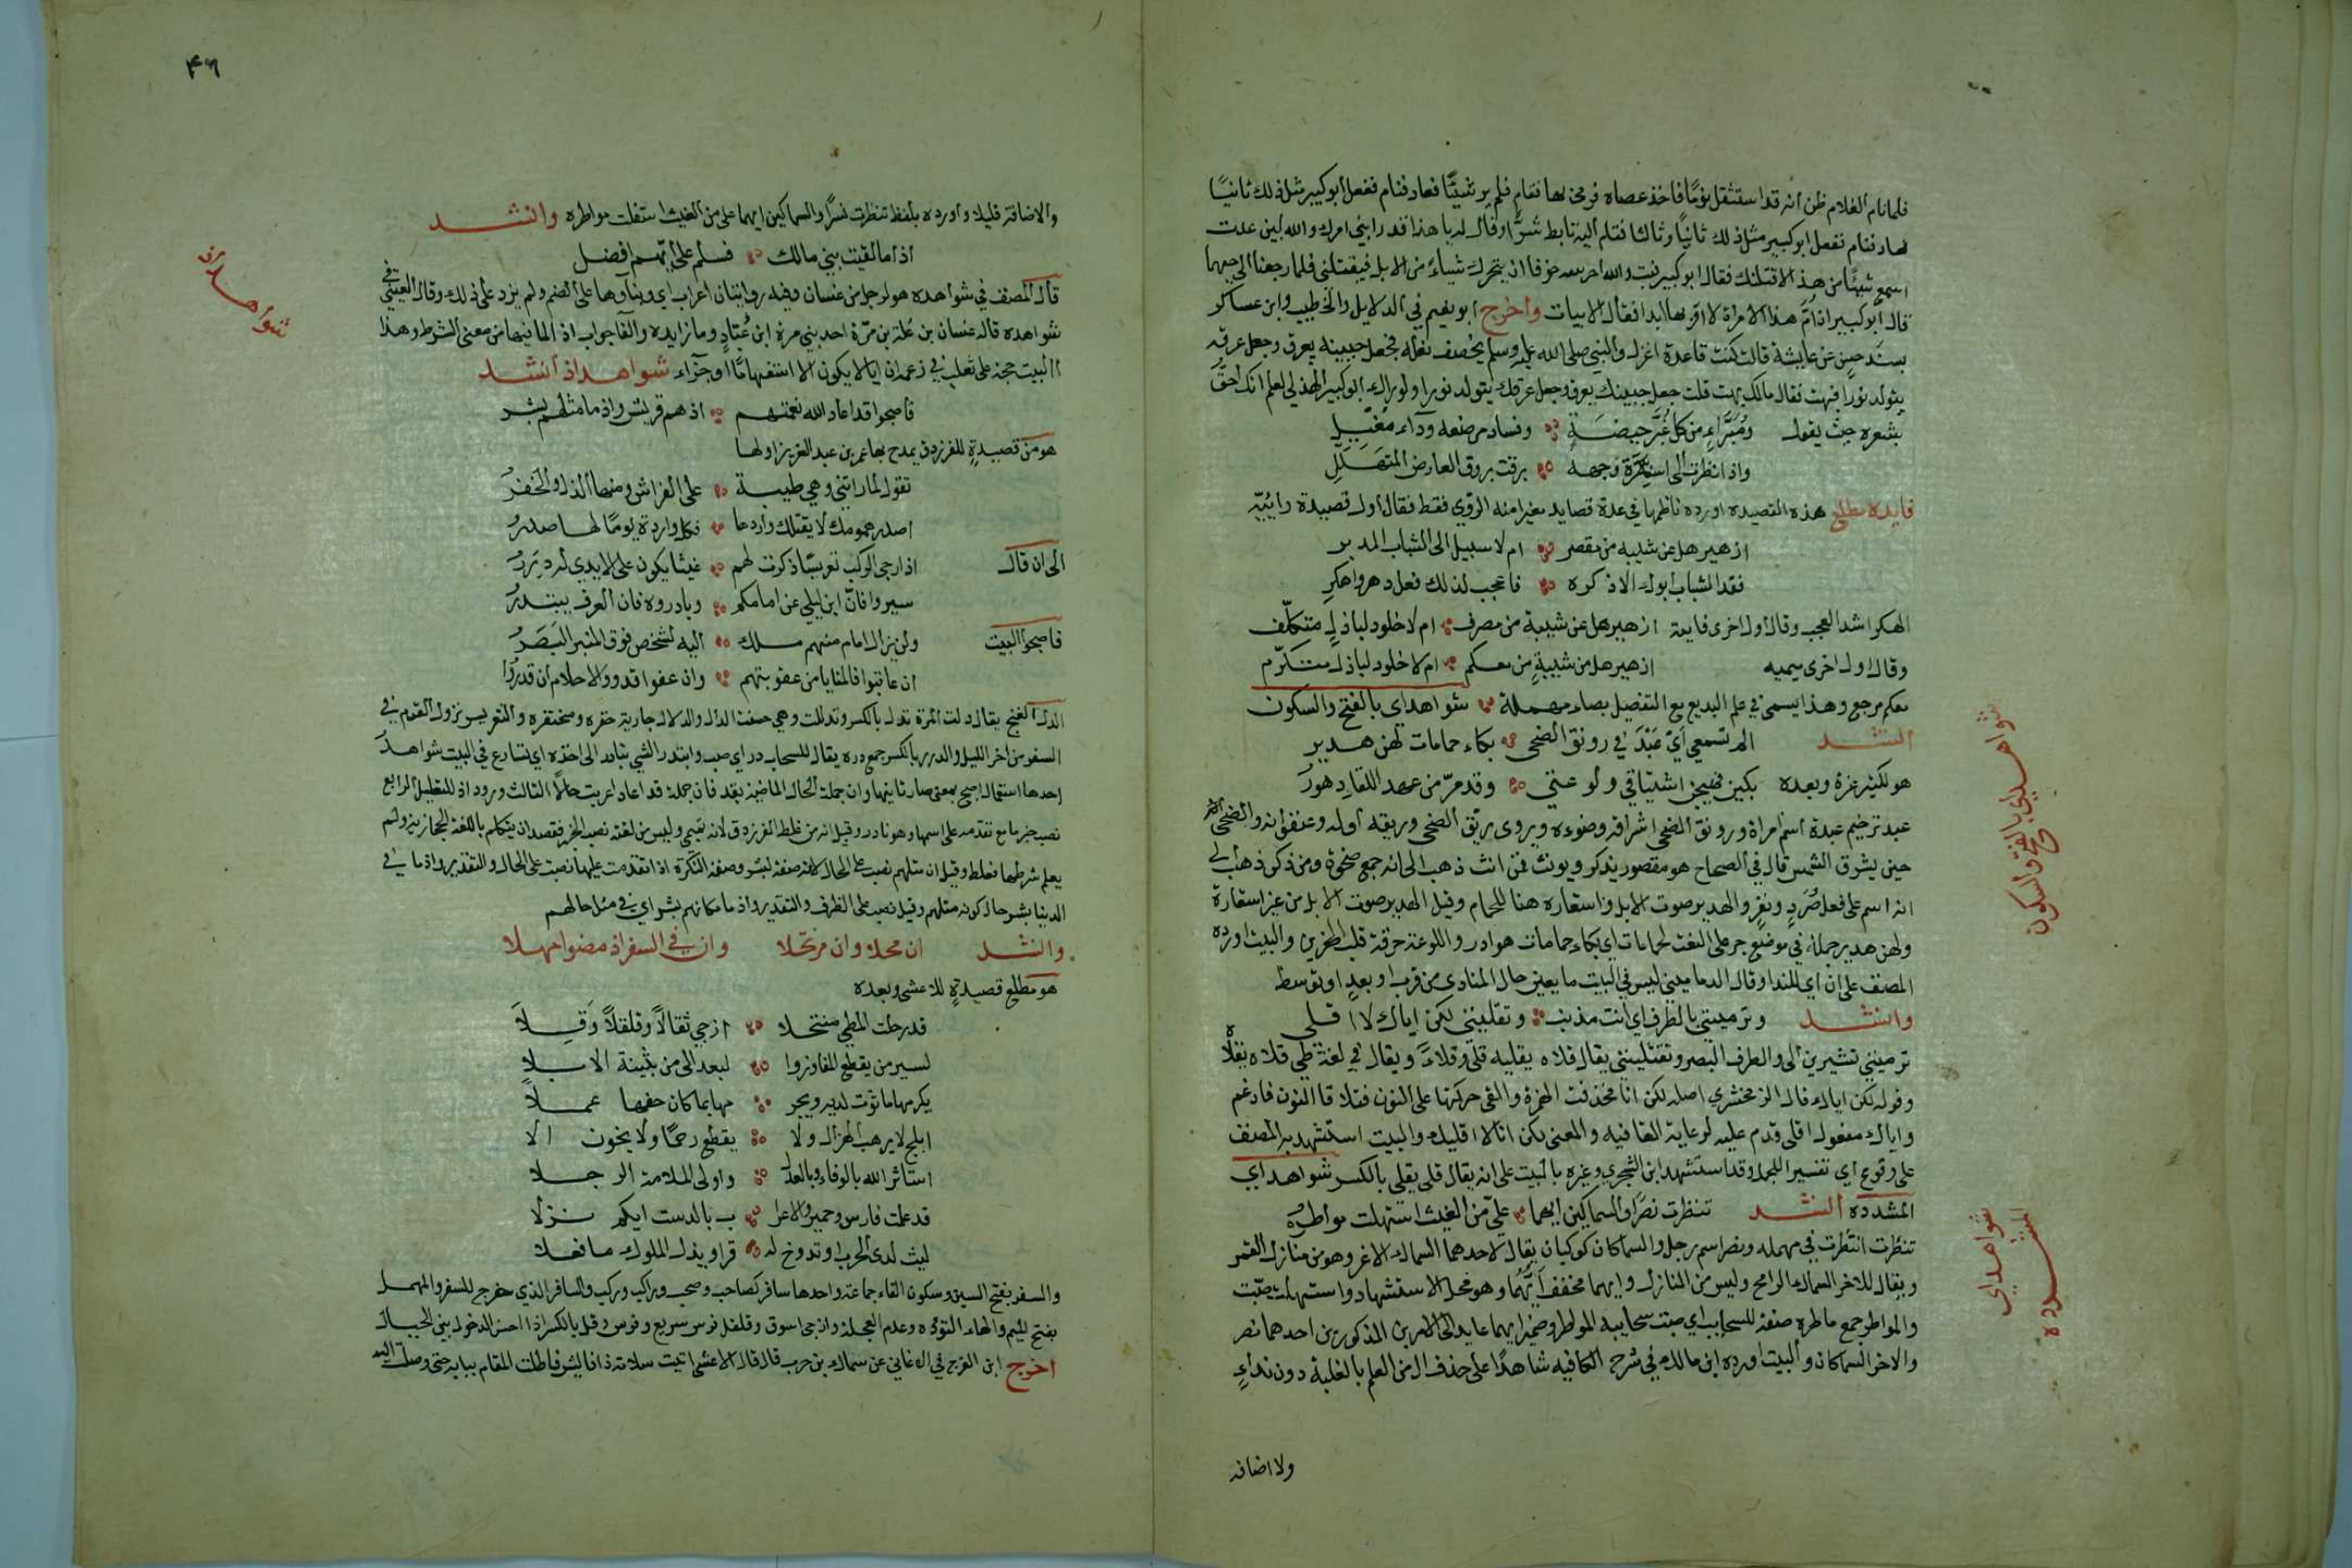 فلما نام الغلام ظن أنه قد استثقل نوما فاخذ عصاه فرمى بها فقام فلم ير شيئا فعاد فنام ففعل ابو كبير مثل ذلك ثانيا
فعاد فنام ففعل ابو كبير مثل ذلك ثانيا وثالثا فقام اليه تابط شرا وقال له يا هذا قد رابني امرك والله لين عدت
اسمع شيئا من هذا لاقتلنك فقال ابو كبير فبت والله احرسه خوفا ان يتحرك شيء من الابل فيقتلني فلما رجعنا الى حيهما
قال ابو كبير ان أم هذا لامراة لا اقربها ابدا فقال الابيات واخرج ابو نعيم في الدلايل والخطيب وابن عساكر
بسند حسن عن عايشة قالت كنت قاعدة اغزل والنبي صلى الله عليه وسلم يخصف نعله فجعل جبينه يعرق وجعل عرقه
يتولد نورا فبهت فقال مالك بهت قلت جعل جبينك يعرق وجعل عرقك يتولد نورا ولو راك ابو كبير الهذلي لعلم انك احق
بشعره حيث يقول ومبراء من كل غبر حيضة وفساد مرضعة وداء مغيل
واذا نظرت الى اسرة وجهه برقت بروق العارض المتهلل
فايدة مطلع هذه القصيدة اورده ناظمها في عدة قصايد مغيرا منه الروي فقط فقال اول قصيدة رائية
ازهير هل عن شيبة من مقصر ام لا سبيل الى الشباب المدبر
فقد الشباب ابوك الا ذكره فاعجب لذلك فعل دهر واهكر
الهكر اشد العجب وقال اول اخرى فايية ازهير هل عن شيبة من مصرف ام لا خلود لباذل متكلف
وقال اول اخرى ميمية ازهير هل عن شيبة من معكم ام لا خلود لباذل متكرم
معكم مرجع وهذا يسمى في علم البديع التفصيل بصاد مهملة شواهد اي بالفتح والسكون
انشد الم تسمعي اي عبد في رونق الضحى بكاء حمامات لهن هدير
هو لكثير عزة وبعده بكين فهيجن اشتياقي ولوعتي وقد مر من عهد اللقاء دهور
عبد ترخيم عبدة اسم امراة ورونق الضحى اشراقه وضوءه ويروى ريق الضحى وريقه اوله وعنفوانه والضحى
حين يشرق الشمس قال في الصحاح هو مقصور يذكر ويونث فمن انث ذهب الى انه جمع ضحوة ومن ذكر ذهب الى
انه اسم على فعل صرد ونغر والهدير صوت الابل واستعاره هنا للحمام وقيل الهدير صوت الابل من غير استعارة
ولهن هدير جملة في موضع جر على النعت لحمامات اي بكاء حمامات هوادر واللوعة حرقة قلب الحزين والبيت اورده
المصنف على ان اي للندا وقال الدماميني ليس في البيت ما يعين حال المنادى من قرب او بعد او توسط
وانشد وترمينني بالطرف اي انت مذنب وتقلينني لكن اياك لا اقلي
ترمينني تشيرين الي والطرف البصر وتقلينني يقال قلاه يقليه قلى وقلاء ويقال في لغة طي قلاه يقلاه
وقوله لكن اياك قال الزمخشري اصله لكن انا فحذفت الهمزة والقى حركتها على النون فتلاقا النون فادغم
واياك مفعول اقلي قدم عليه لرعاية القافية والمعنى لكن انا لا اقليك والبيت استشهد به المصنف
على وقوع اي تفسيرا للجمل وقد استشهد ابن الشجري وغيره بالبيت على انه يقال قلى يقلي بالكسر شواهد اي
المشددة انشد تنظرت نصرا والسماكين ايهما علي من الغيث استهلت مواطره
تنظرت انتظرت في مهملة ونصر اسم رجل والسماكان كوكبان يقال لاحدهما السماك الاغر وهو من منازل القمر
ويقال للاخر السماك الرامح وليس من المنازل وايهما مخفف أيهما وهو محل الاستشهاد واستهلت صبت
والمواطر جمع ماطرة صفة للسحايب اي صبت سحايبه المواطر وضمير ايهما عايد الى الامرين المذكورين احدهما نصر
والاخر السماكان والبيت اورده ابن مالك في شرح الكافية شاهدا على حذف ال من العلم بالغلبة دون نداء
ولا اضافة
شواهد اي بالفتح والسكون
شواهد اي
المشددة
۴۶
والاضافة قليلا واورده بلفظ تنظرت نسرا والسماكين ايهما علي من الغيث استقلت مواطره وانشد
اذا ما لقيت بني مالك فسلم على ايهم افضل
قال المصنف في شواهده هو لرجل من غسان وفيه روايتان اعراب اي وبناوها على الضم ولم يزد على ذلك وقال العيني في
شواهده قاله غسان بن علة بن مرة احد بني مرة ابن عباد وما زايدة والفا جواب اذا لما فيها من معنى الشرط وهذا
البيت حجة على ثعلب في زعمه ان ايا لا يكون الا استفهاما او جزاء شواهد اذ انشد
فاصبحوا قد اعاد الله نعمتهم اذ هم قريش واذ ما مثلهم بشر
هو من قصيدة للفرزدق يمدح بها عمر بن عبد العزيز اولها
تقول لما راتني وهي طيبة على الفراش ومنها الدل والخفر
اصدر همومك لا يقتلك واردها فكل واردة يوما لها صدر
الى ان قال اذا رجى الركب تعريسا ذكرت لهم غيثا يكون على الايدي له درر
سيروا فان ابن ليلى عن امامكم وبادروه فان العرف يبتدر
فاصبحوا البيت ولن يزال امام منهم ملك اليه يشخص فوق المنبر البصر
ان عاقبوا فالمنايا من عقوبتهم وان عفوا فذوو الاحلام ان قدروا
الدل الغنج يقال دلت المرة تدل بالكسر وتدللت وهي حسنة الدل والدلال جارية خفرة ومتخفرة والتعريس نزول القوم في
السفر من اخر الليل والدرر بالكسر جمع درة يقال للسحاب درر اي صب وابتدر الشي تبادر الى اخذه اي تسارع في البيت شواهد
احدها استعمال اصبح بمعنى صار ثانيها وان جملة الحال الماضية بقد فان جملة قد اعاد اعربت حالا الثالث ورود اذ للتعليل الرابع
نصب خبر ما مع تقدمه على اسمها وهو نادر وقيل انه من غلط الفرزدق لانه تميمي وليس من لغته نصب الخبر فقصد ان يتكلم باللغة الحجازية ولم
يعلم شرطها فغلط وقيل ان مثلهم نصب على الحال لانه صفة لبشر وصفة النكرة اذا تقدمت عليها نصبت على الحال والتقدير واذ ما في
الدنيا بشر حال كونه مثلهم وقيل نصب على الظرف والتقدير واذ ما مكانهم بشر اي في مثل حالهم
وانشد ان محلا وان مرتحلا وان في السفر اذ مضوا مهلا
هو مطلع قصيدة للاعشى وبعده
قد رحلت المطي منتخلا ازجي ثقالا وقلقلا وقلا
لسير من يقطع المفاوز وا لبعد الى من يثيبه الابلا
يكرمها ما ثوت لديه ويجز يها بما كان خفها عملا
ابلج لا يرهب الهزال ولا يقطع رحما ولا يخون الا
استاثر الله بالوفاء وبالعد ل واولى الملامة الرجلا
قد علمت فارس وحمير والاعرا ب بالدست ايكم نزلا
ليث لدى الحرب او تدوخ له قسرا وبذ الملوك ما فعلا
والسفر بفتح السين وسكون الفاء جماعة واحدها سافر كصاحب وصحب وراكب وركب والسافر الذي خرج للسفر والمهل
بفتح الميم والهاء التؤدة وعدم العجلة وازجي اسوق وقلقل فرس سريع وفرس وقل بالكسر اذا احسن الدخول بين الجبال
اخرج ابن الفرج في الاغاني عن سماك بن حرب قال قال الاعشى اتيت سلامة ذا فائش فاطلت المقام ببابه حتى وصلت اليه